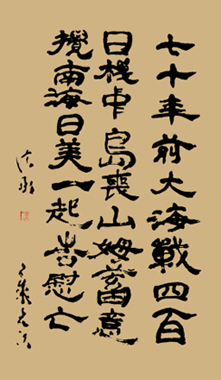 七十年前大海戰四百
日機中島喪山姆蓄意
攪南海日美一起告慰亡